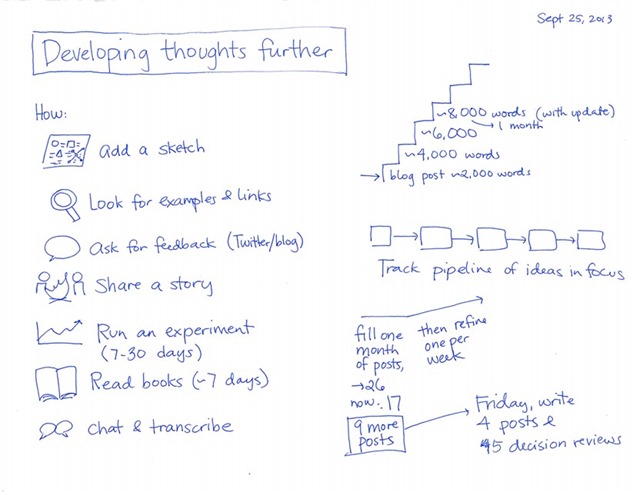 Sept 25, 2013
Developing thoughts further
How:
Add a sketch
Look for examples & links
Ask for feedback (Twitter/blog)
Share a story
Run an experiment
(7-30 days)
Read books (~7 days)
Chat & transcribe
~8,000 words (with update)
1 month
~6,000
~4,000 words
blog post ~2,000 words
Track pipeline of ideas in focus
fill one
month
of posts,
→26
now: 17
then refine
one per
week
9 more
posts
Friday, write
4 posts &
5 decision reviews